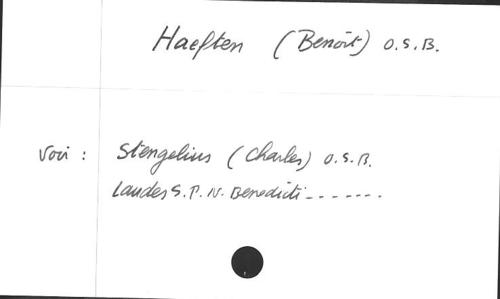 Haeften (Benoît) O.S.B.
Voir : Stengelius (Charles) O.S.B.
Laudes S.P.N. Benedicti -------.